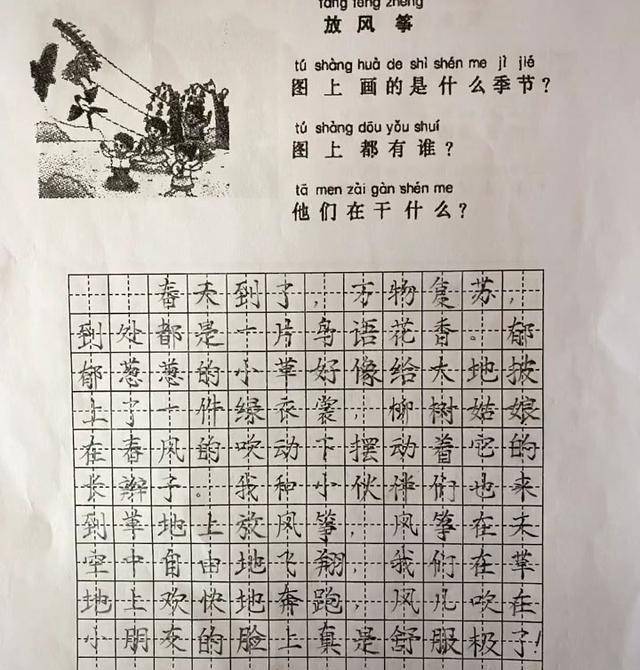 fàng fēng zheng
放风筝
tú shàng huà de shì shén me jì jié
图上画的是什么季节?
tú shàng dōu yǒu shuí
图上都有谁?
tā men zài gàn shén me
他们在干什么?
春天到了,万物复苏,
到处都是一片鸟语花香。郁
郁葱葱的小草好像给大地披
上了一件绿衣裳,柳树姑娘
在春风的吹动下摆动着它的
长辫子。我和小伙伴们也来
到草地上放风筝,风筝在天
空中自由地飞翔,我们在草
地上欢快地奔跑,风儿吹在
小朋友的脸上真是舒服极了!